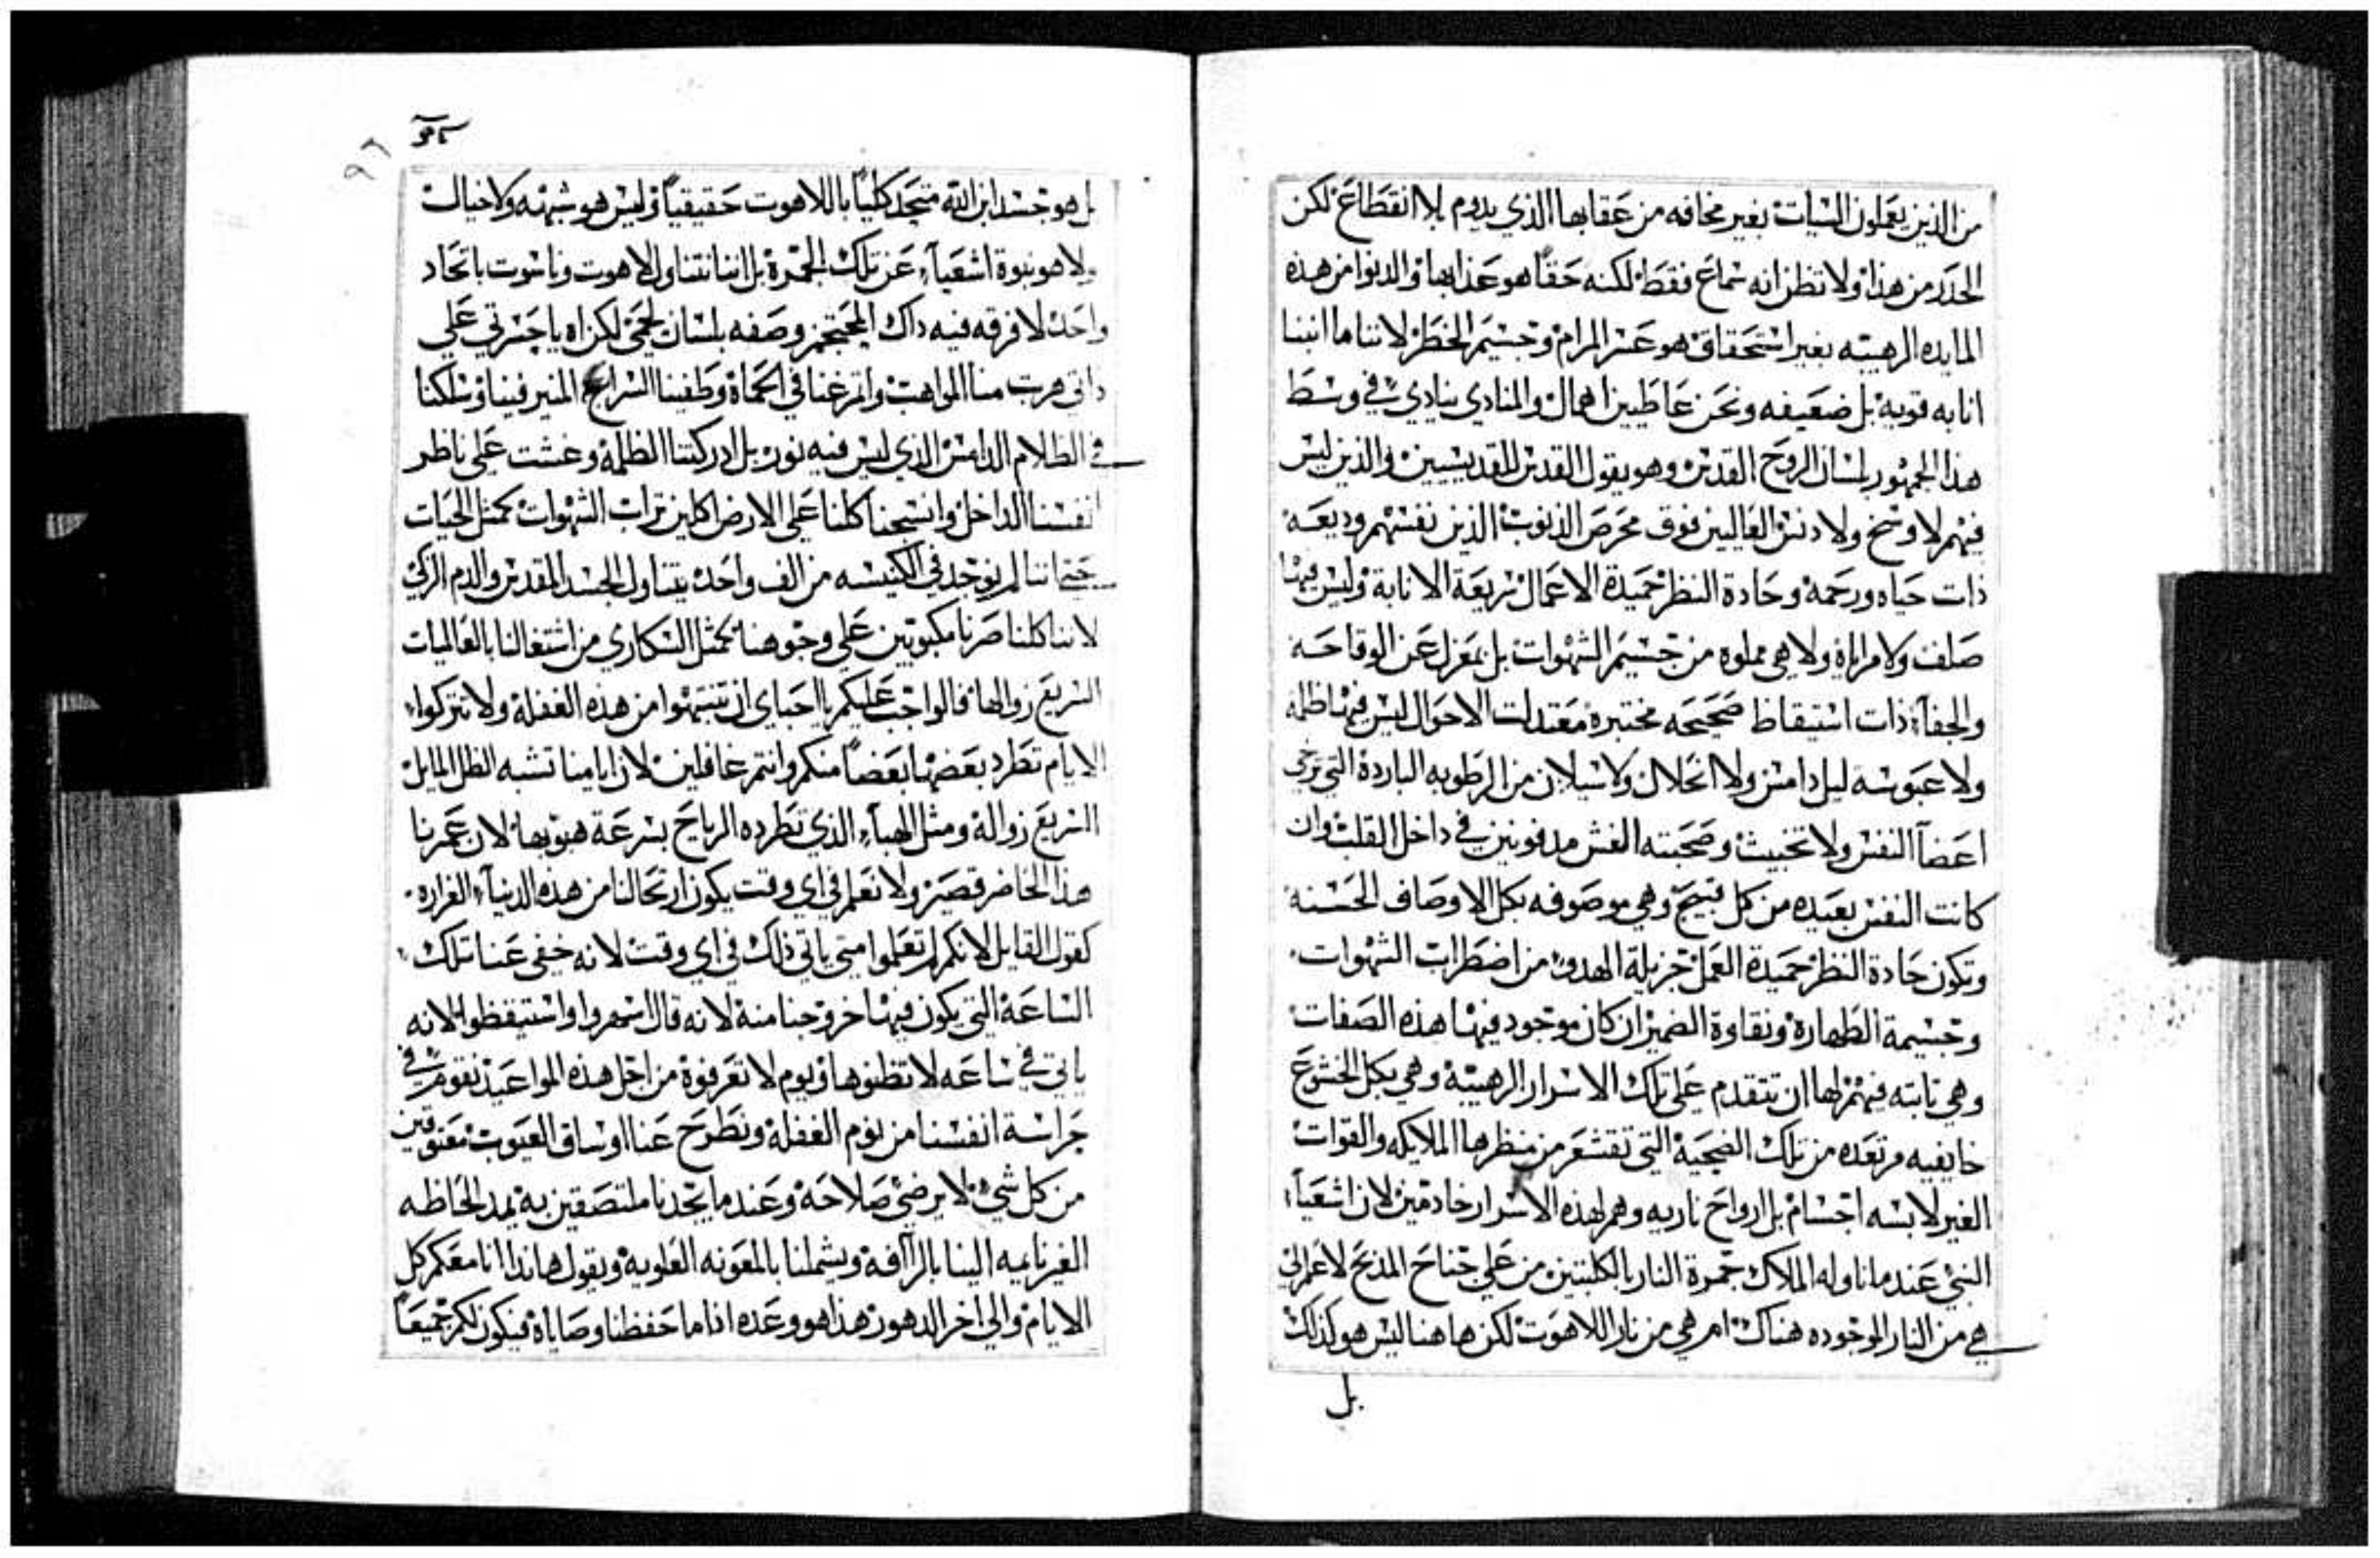 من الذين يعملون السيات بغير مخافه من عقابها الذي يدوم بلا انقطاع لكن
الحدر من هذا ولا تظن انه سماع فقط لكنه حقًا هو عذابها والدنوا من هذه
المايده الرهيبه بغير استحقاق هو عسر المرام وجسيم الخطر لاننا ما انبنا
انابه قويه بل ضعيفه ونحن عاطيين اهمال والمنادي ينادي في وسط
هذا الجمهور بلسان الروح القدس وهو يقول القدس للقديسين والذين ليس
فيهم لا وسخ ولا دنس العاليين فوق محرص الذنوب الذين نفسهم وديعه
ذات حياه ورحمه وحادة النظر حميدة الاعمال سريعة الانابة وليس فيها
صلف ولا مراياة ولا هي مملوه من جسيم الشهوات بل بمعزل عن الوقاحه
والجفآء ذات استيقاظ صحيحه مختبره معتدلت الاحوال ليس فيها ظلمه
ولا عبوسة ليل دامس ولا انحلال ولا سيلان من الرطوبه الباردة التي ترخي
اعضآ النفس ولا تخبيث وصحبته الغش مدفونين في داخل القلب وان
كانت النفس بعيده من كل قبيح وهي موصوفه بكل الاوصاف الحسنه
وتكون حادة النظر حميدة العمل جزيلة الهدو من اضطراب الشهوات
وجسيمة الطهارة ونقاوة الضمير ان كان موجود فيها هذه الصفات
وهي تابته فيهم لها ان تتقدم علي تلك الاسرار الرهيبه وهي بكل الخشوع
خايفيه مرتعده من تلك الضحيه التي تقشعر من منظرها الملايكه والقوات
الغير لابسه اجسام بل ارواح ناريه وهم لهذه الاسرار خادمين لان اشعيآء
النبي عندما ناوله الملاك جمرة النار بالكلبتين من علي جناح المذبح لا علم لي
هي من النار الموجوده هناك ام هي من نار اللاهوت لكن ها هنا ليس هو كذلك
بل
بل هو جسد ابن الله متحد كليًا باللاهوت حقيقيًا وليس هو شبهه ولا خيال
ولا هو نبوة اشعيآء عن تلك الجمرة بل اننا نتناول لاهوت وناسوت باتحاد
واحد لا فرقه فيه داك المحتجز وصفه بلسان لحمي لكن اه يا حسرتي علي
ذاتي هربت منا المواهب واتمرغنا في الحماة وطفينا السراج المنير فينا وسلكنا
في الظلام الدامس الذي ليس فيه نور بل ادركتنا الظلمة وغشت علي ناظر
انفسنا الداخل وانسحبنا كلنا علي الارض اكلين تراب الشهوات كمثل الحيات
حتي اننا لم يوجد في الكنيسه من الف واحد يتناول الجسد المقدس والدم الزكي
لاننا كلنا صرنا مكبوبين علي وجوهنا كمثل السكاري من اشتغالنا بالعالميات
السريع زوالها فالواجب عليكم يا احباي ان تنتبهوا من هذه الغفلة ولا تتركوا
الايام تطرد بعضها بعضاً منكم وانتم غافلين لان ايامنا تشبه الظل المايل
السريع زواله ومثل الهبآء الذي تطرده الرياح بسرعة هبوبها لان عمرنا
هذا الحاضر قصير ولا نعلم في اي وقت يكون ارتحالنا من هذه الدنيآ الغراره
كقول القايل لانكم لم تعلموا متي ياتي ذلك في اي وقت لانه خفي عنا تلك
الساعة التي يكون فيها خروجنا منه لانه قال اسهروا واستيقظوا لانه
ياتي في ساعه لا تظنوها ويوم لا تعرفوة من اجل هذه المواعيد نقوم في
حراسة انفسنا من نوم الغفلة ونطرح عنا اوساق العيوب معتوقين
من كل شي لا يرضي صلاحه وعندما يجدنا ملتصقين به يمد الحاظه
الغير نايمه الينا بالرآفه ويشملنا بالمعونه العلويه ويقول هانذا انا معكم كل
الايام والي اخر الدهور هذا هو وعده اذا ما حفظنا وصاياة فيكون لكم جميعاً